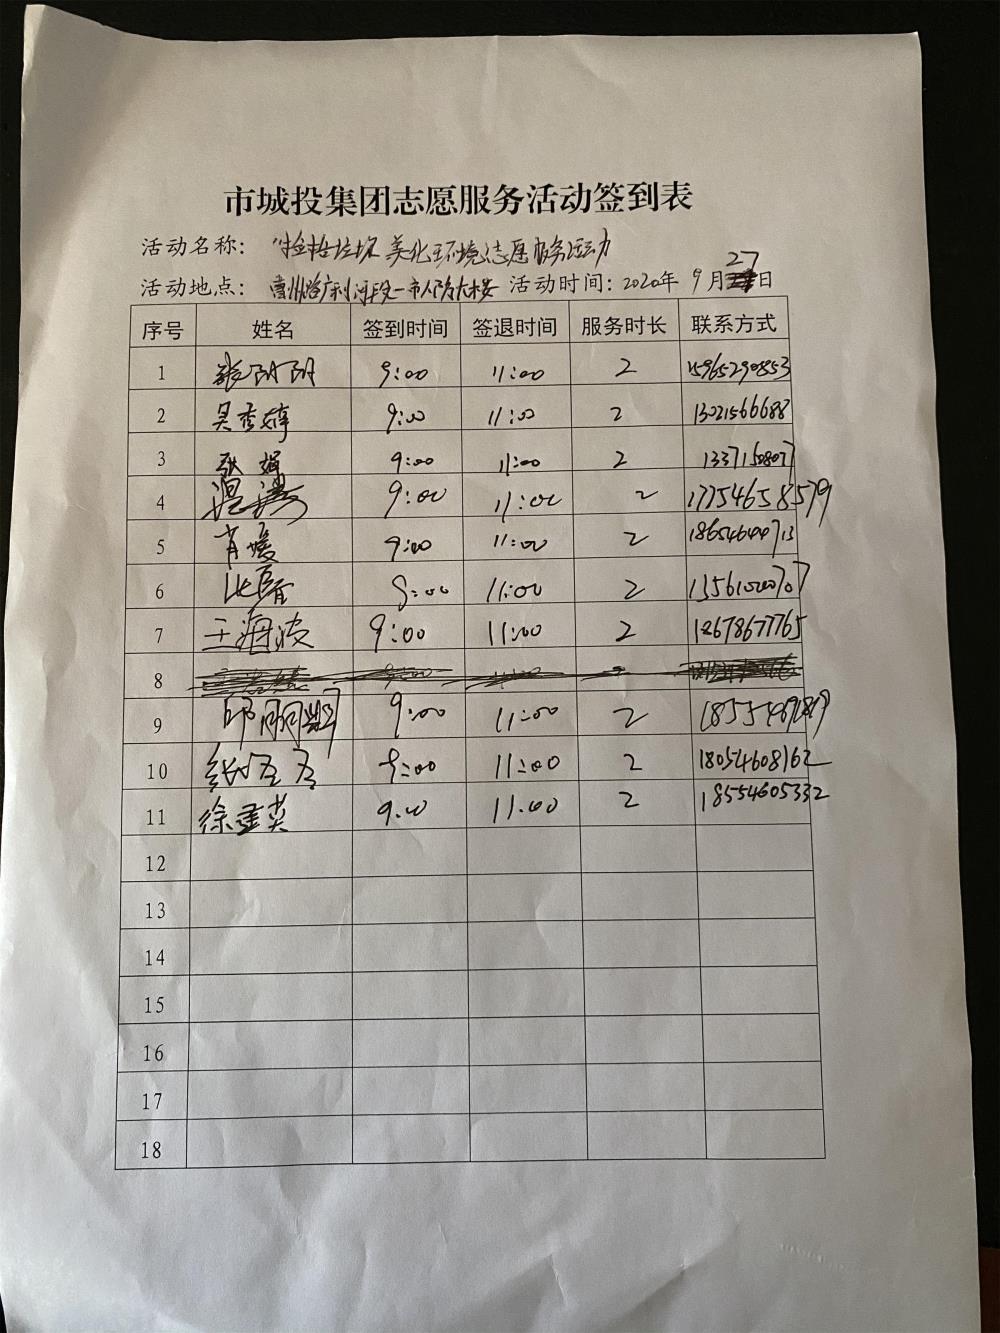 市城投集团志愿服务活动签到表
活动名称： “捡拾垃圾 美化环境志愿服务活动
活动地点： 广利河段一市人防大楼 活动时间：2020年 9月27日
序号 姓名 签到时间 签退时间 服务时长 联系方式
1 张阳阳 9:00 11:00 2 15965290853
2 吴秀婷 9:00 11:00 2 13021566688
3 张娟 9:00 11:00 2 13371508077
4 温涛 9:00 11:00 2 17754658579
5 肖媛 9:00 11:00 2 18654644713
6 9:00 11:00 2 13561000707
7 王海波 9:00 11:00 2 12678677765
8
9 邱 9:00 11:00 2
10 9:00 11:00 2 18054608162
11 徐 9:00 11:00 2 18554605332
12
13
14
15
16
17
18